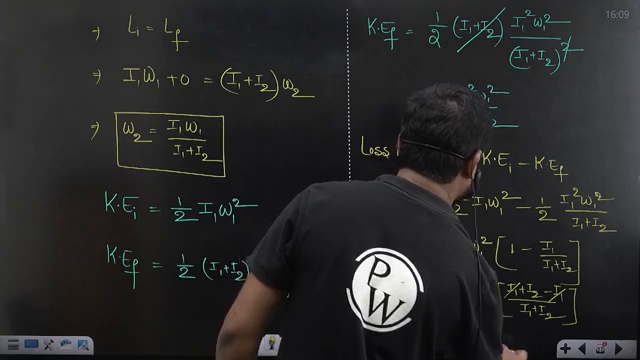 16:09
⇒ Li = Lf
⇒ I₁ω₁ + 0 = (I₁+I₂)ω₂
⇒ ω₂ = I₁ω₁ / (I₁+I₂)
K·Ei = 1/2 I₁ω₁²
K·Ef = 1/2 (I₁+I₂)
K·Ef = 1/2 (I₁+I₂) I₁²ω₁² / (I₁+I₂)²
Loss K·Ei − K·Ef
I₁ω₁² − 1/2 I₁²ω₁² / (I₁+I₂)
[1 − I₁ / (I₁+I₂)]
[I₁+I₂−I₁ / (I₁+I₂)]
P
W